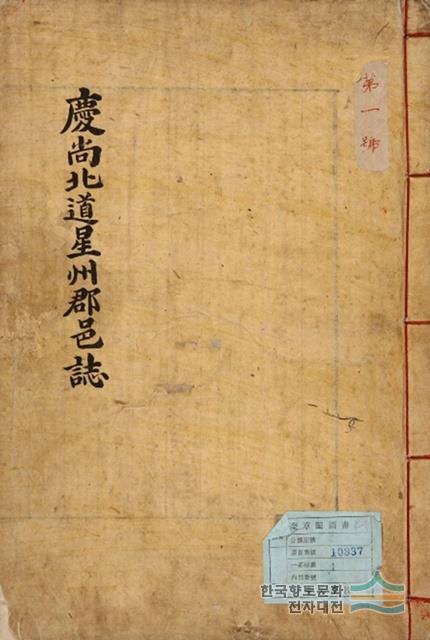 第一號
慶尚北道星州郡邑誌
奎章閣圖書
圖書番號 10837
한국향토문화
전자대전